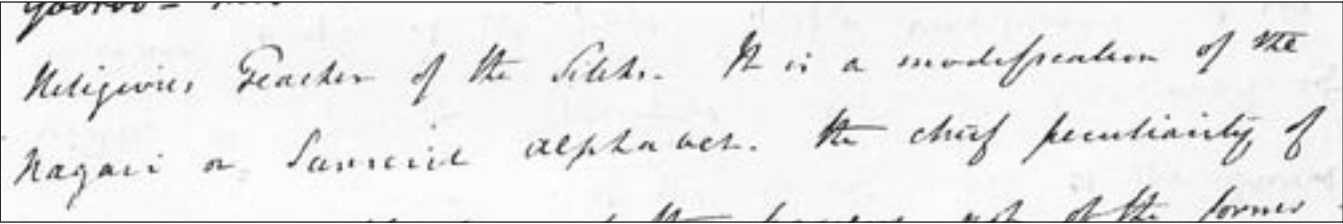 Gooroo
Religious Teacher of the Sikhs. It is a modification of the
Nagari or Sanscrit alphabet. The chief peculiarity of
of the former